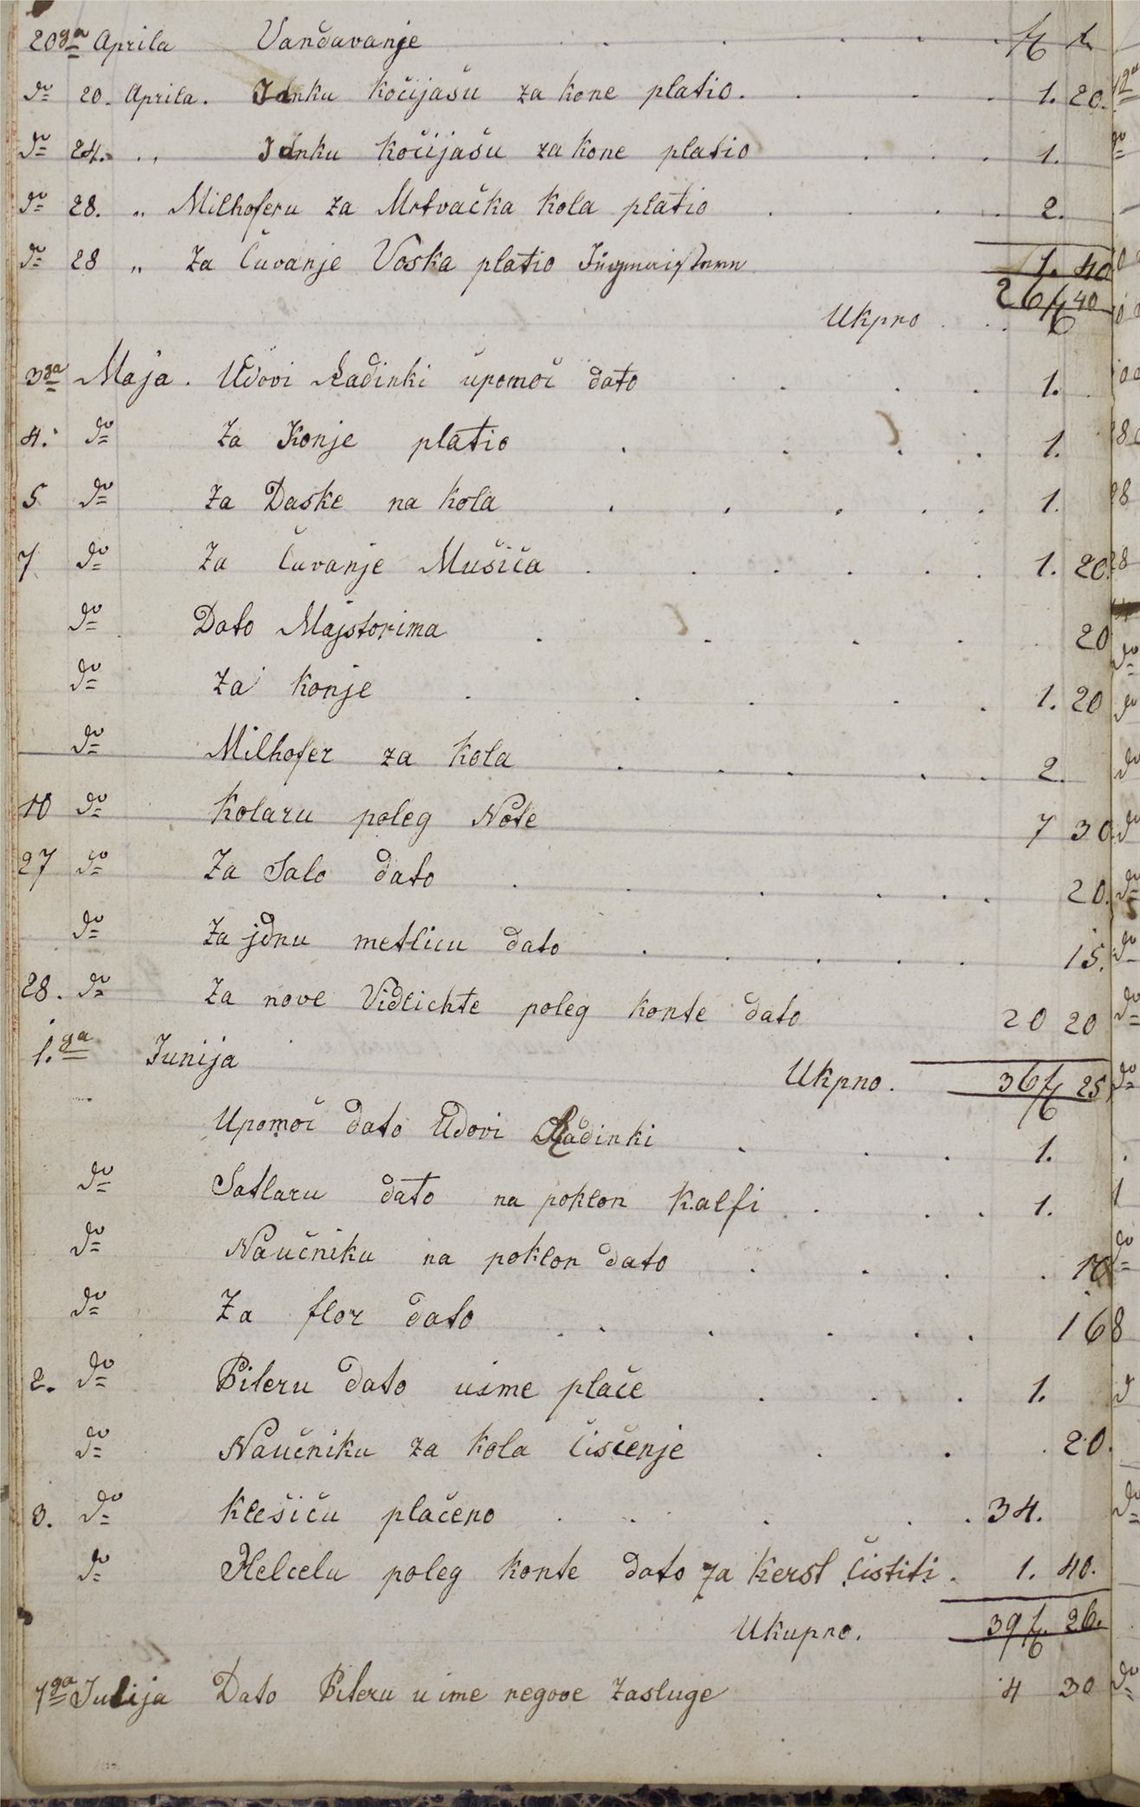 20ga Aprila Vandavanje f x
do 20. Aprila. Janku Kočijašu za kone platio. 1. 20.
do 24. „ Janku Kočijašu za kone platio 1.
do 28. „ Milhoferu za Mrtvačka Kola platio 2.
do 28 „ Za Čuvanje Voska platio 1. 40
Ukpno 26 f 40
3ga Maja. Udovi Radinki upomoč dato 1.
4. do Za Konje platio 1.
5 do Za Daske na Kola 1.
7 do Za Čuvanje Mušiča 1. 20.
do Dato Majstorima 20
do Za Konje 1. 20
do Milhofer za Kola 2.
10 do Kolaru poleg Note 7 30
27 do Za Salo dato 20.
do Za jdnu metlicu dato 15.
28. do Za nove Vidlichte poleg Konte dato 20 20
1.ga Junija Ukpno. 36 f 25
Upomoč dato Udovi Radinki 1.
do Satlaru dato na poklon Kalfi 1.
do Naučniku na poklon dato 10
do Za flor dato 16
2. do Pileru dato uime plače 1.
do Naučniku za Kola Čisčenje 20.
3. do Klešiču plačeno 34.
do Helcelu poleg Konte dato za Kerst Čistiti. 1. 40.
Ukupno. 39 f. 26.
7ga Julija Dato Pileru u ime negove Zasluge 4 30